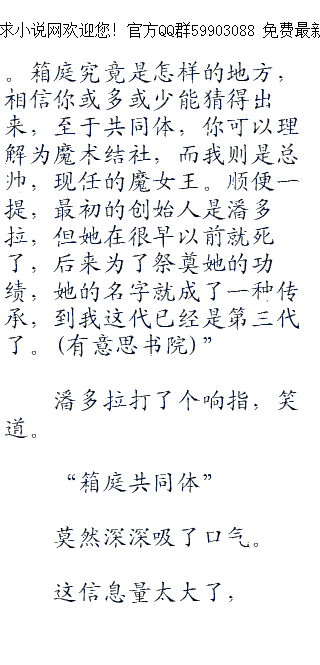 求小说网欢迎您！官方QQ群59903088 免费最新
。箱庭究竟是怎样的地方，
相信你或多或少能猜得出
来，至于共同体，你可以理
解为魔术结社，而我则是总
帅，现任的魔女王。顺便一
提，最初的创始人是潘多
拉，但她在很早以前就死
了，后来为了祭奠她的功
绩，她的名字就成了一种传
承，到我这代已经是第三代
了。(有意思书院)”
潘多拉打了个响指，笑
道。
“箱庭共同体”
莫然深深吸了口气。
这信息量太大了，